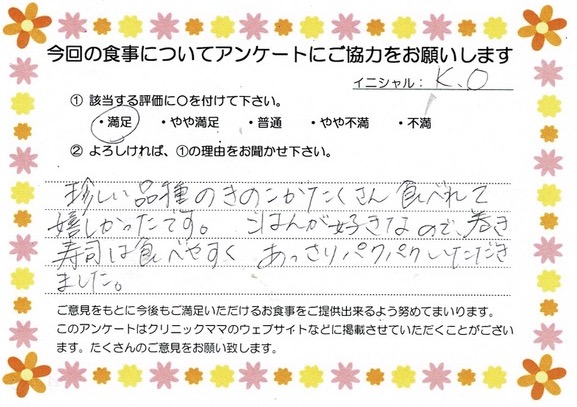 今回の食事についてアンケートにご協力をお願いします
イニシャル: K.O
① 該当する評価に○を付けて下さい。
・満足 ・やや満足 ・普通 ・やや不満 ・不満
② よろしければ、①の理由をお聞かせ下さい。
珍しい品種のきのこがたくさん食べれて
嬉しかったです。 ごはんが好きなので、巻き
寿司は食べやすく あっさりパクパクいただき
ました。
ご意見をもとに今後もご満足いただけるお食事をご提供出来るよう努めてまいります。
このアンケートはクリニックママのウェブサイトなどに掲載させていただくことがござい
ます。たくさんのご意見をお願い致します。